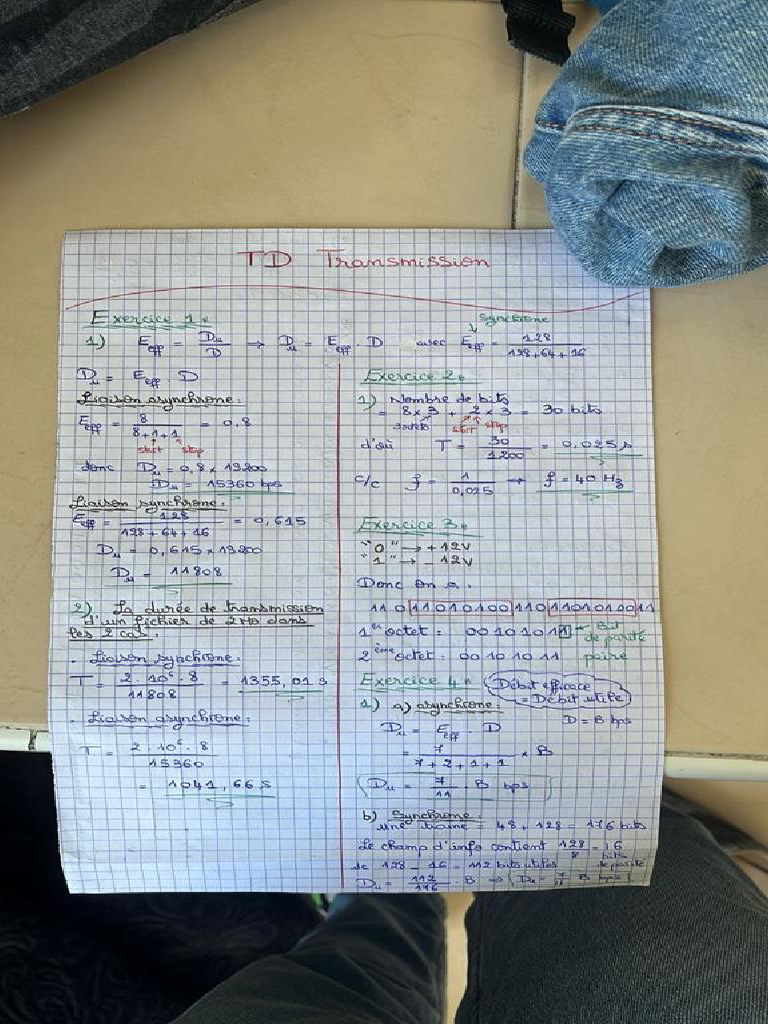 TD Transmission
Exercice 1:
1) Eeff = Du/D → Du = Eeff . D avec Eeff = 128/(128+64+16)
synchrone
Du = Eeff . D
Liaison asynchrone:
Eeff = 8/(8+1+1) = 0,8
start stop
donc Du = 0,8 x 19200
Du = 15360 bps
Liaison synchrone:
Eeff = 128/(128+64+16) = 0,615
Du = 0,615 x 19200
Du = 11808
2) La durée de transmission
d'un fichier de 2 Mo dans
les 2 cas.
. Liaison synchrone:
T = 2.10^6.8/11808 = 1355,01 s
. Liaison asynchrone:
T = 2.10^6.8/15360
= 1041,66 s
Exercice 2:
1) Nombre de bits
= 8 x 3 + 2 x 3 = 30 bits
start stop
d'où T = 30/1200 = 0,025 s
c/c f = 1/0,025 → f = 40 Hz
Exercice 3:
"0" → +12V
"1" → - 12V
Donc on a:
110110101001101101010011
1er octet: 00101011 → Bit
de parité
2ème octet: 00101011 paire
Exercice 4: Débit efficace
= Débit utile
1) a) asynchrone: D = B bps
Du = Eeff . D
= 7/(7+2+1+1) x B
Du = 7/11 . B bps
b) Synchrone:
une trame = 48 + 128 = 176 bits
Le champ d'info contient 128/8 = 16
bits
de parité
dc 128 - 16 = 112 bits utiles
Du = 112/176 . B ⇒ Du = 7/11 B bps